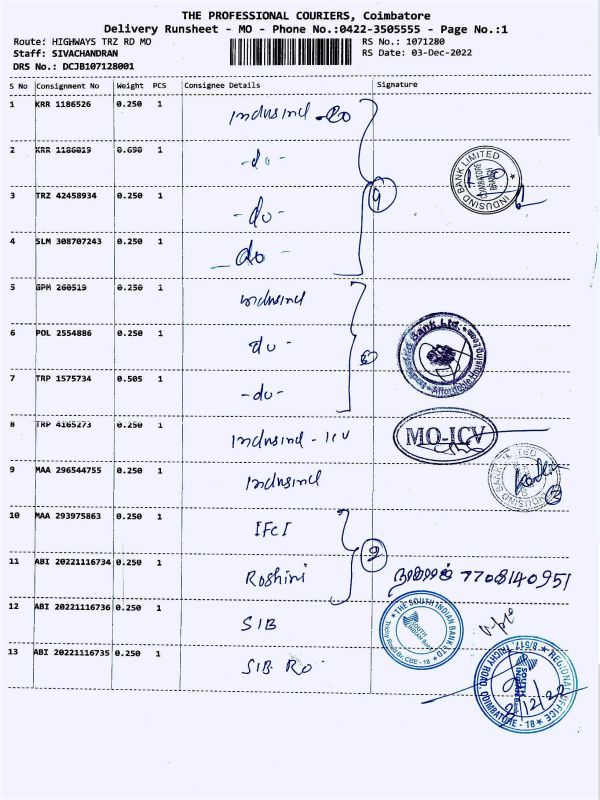 THE PROFESSIONAL COURIERS, Coimbatore
Delivery Runsheet - MO - Phone No.:0422-3505555 - Page No.:1
Route: HIGHWAYS TRZ RD MO RS No.: 1071280
Staff: SIVACHANDRAN RS Date: 03-Dec-2022
DRS No.: DCJB107128001
S No Consignment No Weight PCS Consignee Details Signature
1 KRR 1186526 0.250 1 Indusind - Co
2 KRR 1186019 0.690 1 -do-
3 TRZ 42458934 0.250 1 -do-
4 SLM 308707243 0.250 1 -do-
INDUSIND BANK LIMITED COIMBATORE BRANCH
5 GPM 260519 0.250 1 Indusind
6 POL 2554886 0.250 1 do-
Bank Ltd. Affordable Housing
7 TRP 1575734 0.505 1 -do-
8 TRP 4165273 0.250 1 Indusind - ICV
MO-ICV
9 MAA 296544755 0.250 1 Indusind
BANK LIMITED
10 MAA 293975863 0.250 1 IFCI
11 ABI 20221116734 0.250 1 Roshini 7708140951
12 ABI 20221116736 0.250 1 SIB
THE SOUTH INDIAN BANK LTD Trichy Road Br. CBE - 18
13 ABI 20221116735 0.250 1 SIB RO
REGIONAL OFFICE 8/517 TRICHY ROAD, COIMBATORE - 18
SOUTH INDIAN Bank
2/12/22